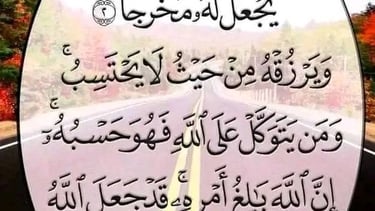 يَجْعَل لَّهُۥ مَخْرَجًا ٢
وَيَرْزُقْهُ مِنْ حَيْثُ لَا يَحْتَسِبُ ۚ
وَمَن يَتَوَكَّلْ عَلَى ٱللَّهِ فَهُوَ حَسْبُهُۥٓ ۚ
إِنَّ ٱللَّهَ بَٰلِغُ أَمْرِهِۦ ۚ قَدْ جَعَلَ ٱللَّهُ